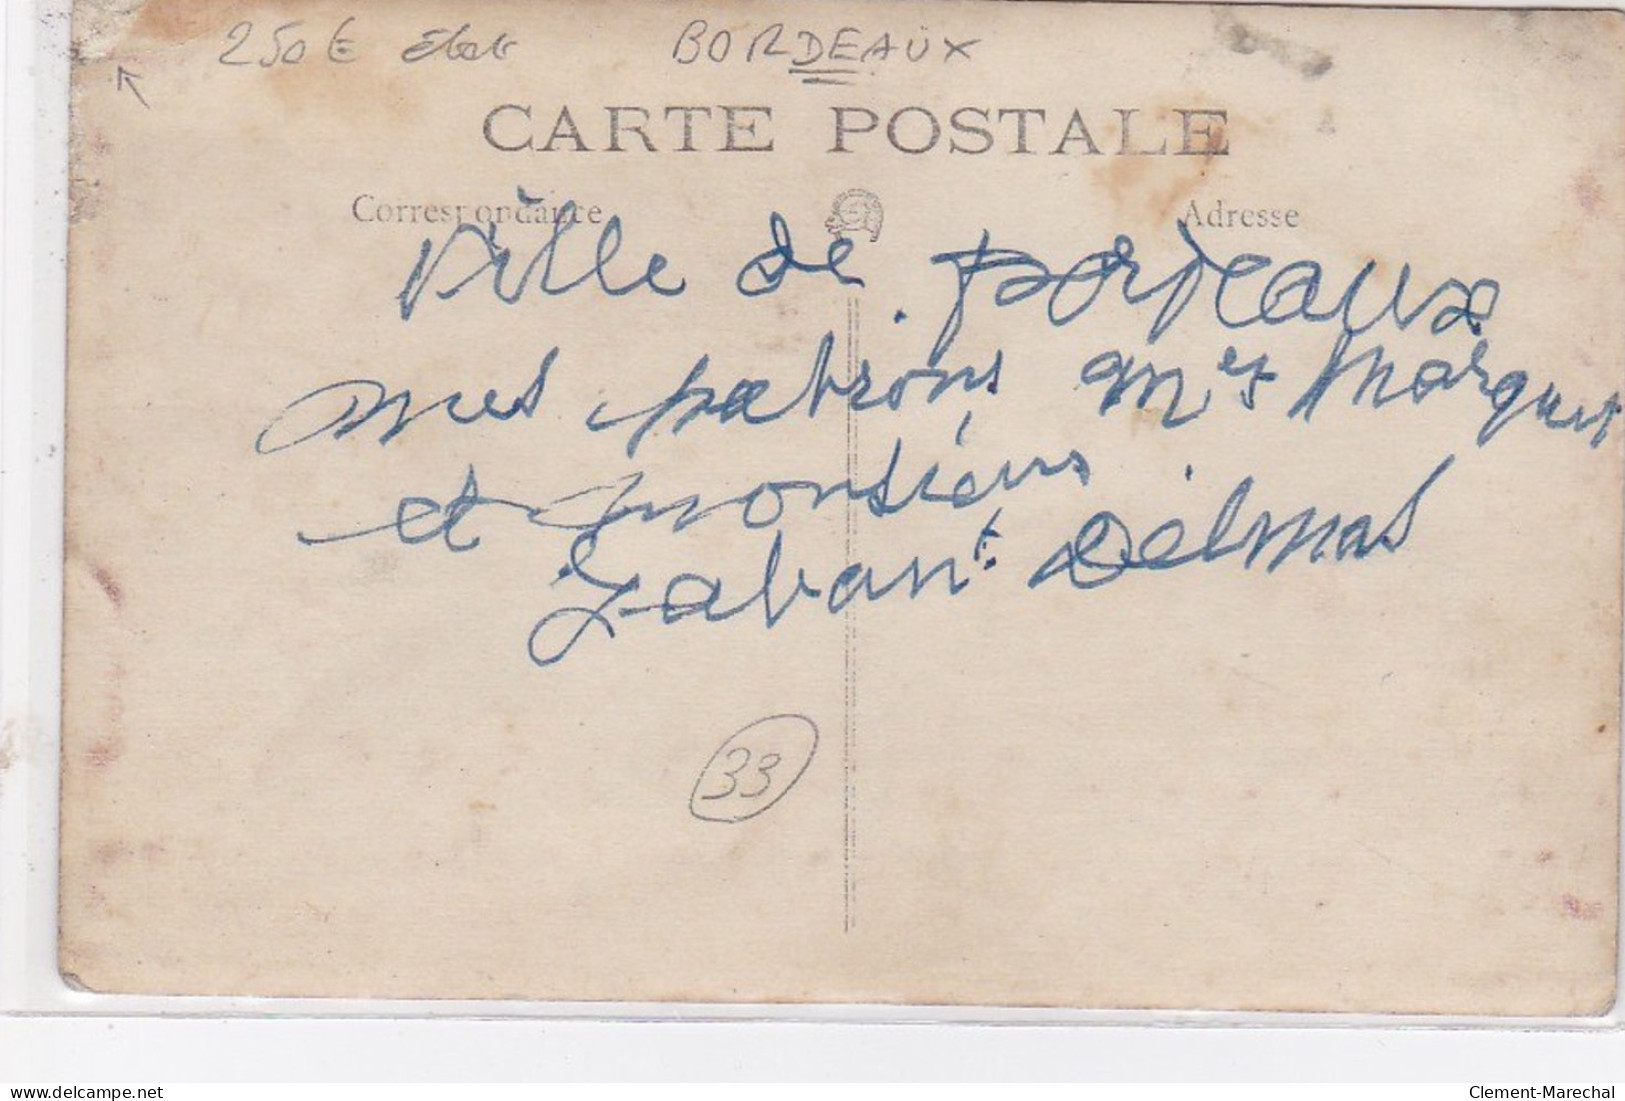 250€ État BORDEAUX
CARTE POSTALE
Correspondance Adresse
Ville de Bordeaux
mes patrons Mr Marquet
et monsieur
Delmas
33
delcampe.net
Clement-Marechal